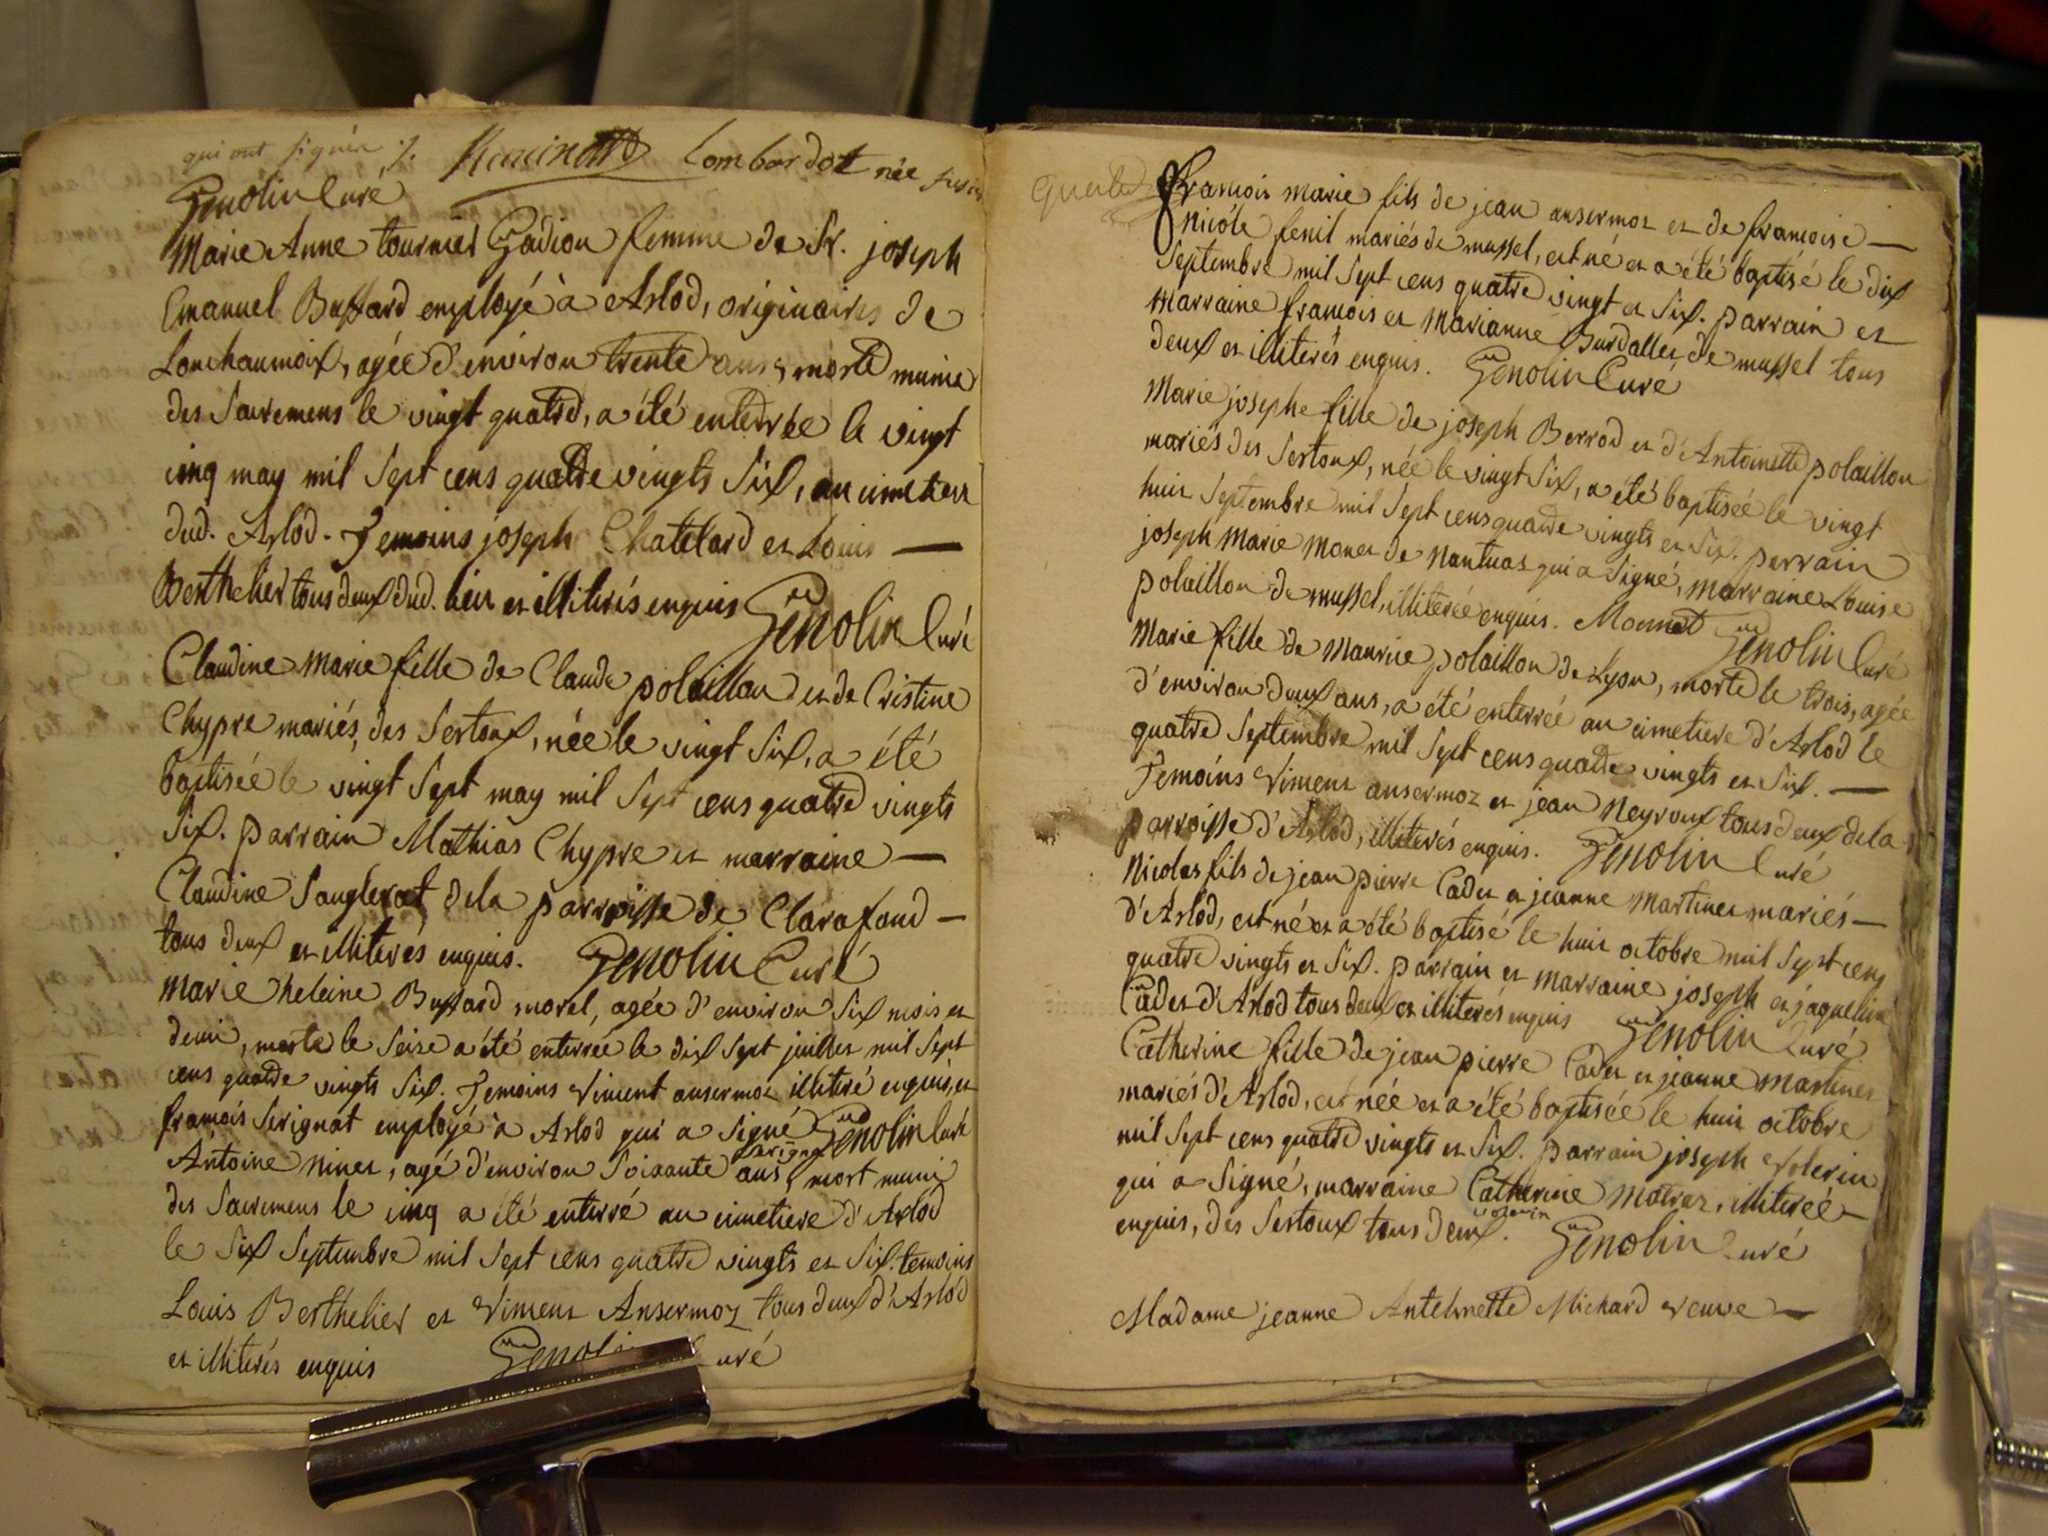 qui ont signés ./. Lombardot née
Genolin Curé
Marie Anne tournier Gadiou femme de Sr. joseph
Emanuel Buffard employé à Arlod, originaires de
Lonchaumoix, agée d'environ trente ans, morte munie
des Sacremens le vingt quatre, a été enterrée le vingt
cinq may mil Sept cens quatre vingts Six, au cimetiere
dud. Arlod. Temoins joseph Chatelard et Louis —
Berthelier tous deux dud. lieu et illiterés enquis Genolin Curé
Claudine marie fille de Claude polaillon et de Cristine
Chypre mariés, des Sertoux, née le vingt Six, a été
baptisée le vingt Sept may mil Sept cens quatre vingts
Six. parrain Mathias Chypre et marraine —
Claudine Sauglerat dela parroisse de Clarafond —
tous deux et illiterés enquis. Genolin Curé
marie heleine Buffard morel, agée d'environ Six mois et
demi, morte le Seise a été enterrée le dix Sept juillet mil Sept
cens quatre vingts Six. Temoins Vincent ansermoz illiteré enquis, et
francois Serignat employé à Arlod qui a Signé Genolin Curé
Serignat
Antoine ninet, agé d'environ Soixante ans, mort muni
des Sacremens le cinq a été enterré au cimetiere d'Arlod
le Six Septembre mil Sept cens quatre vingts et Six. temoins
Louis Berthelier et Vincent Ansermoz tous deux d'Arlod
et illiterés enquis Genolin Curé
francois marie fils de jean ansermoz et de francoise —
nicole fenil mariés de mussel, est né et a été baptisé le dix
Septembre mil Sept cens quatre vingt et Six. parrain et
marraine francois et Marianne Burdallet de mussel tous
deux et illiterés enquis. Genolin Curé
Marie josephe fille de joseph Berrod et d'Antoinette polaillon
mariés des Sertoux, née le vingt Six, a été baptisée le vingt
huit Septembre mil Sept cens quatre vingts et Six. parrain
joseph Marie Monet de Nantuas qui a Signé, marraine Louise
polaillon de mussel, illiterée enquis. Monnet Genolin Curé
Marie fille de Maurice polaillon de Lyon, morte le trois, agée
d'environ deux ans, a été enterrée au cimetiere d'Arlod le
quatre Septembre mil Sept cens quatre vingts et Six. —
Temoins Vincent ansermoz et jean Neyroux tous deux dela
parroisse d'Arlod, illiterés enquis. Genolin Curé
Nicolas fils de jean pierre Cadet et jeanne Martinet mariés —
d'Arlod, est né et a été baptisé le huit octobre mil Sept cens
quatre vingts et Six. parrain et marraine joseph et jaqueline
Cadet d'Arlod tous deux et illiterés enquis Genolin Curé
Catherine fille de jean pierre Cadet et jeanne Martinet
mariés d'Arlod, est née et a été baptisée le huit octobre
mil Sept cens quatre vingts et Six. parrain joseph Volerin
qui a Signé, marraine Catherine Matraz, illiterée —
enquis, des Sertoux tous deux. Volerin Genolin Curé
Madame jeanne Antelmette Michard veuve —